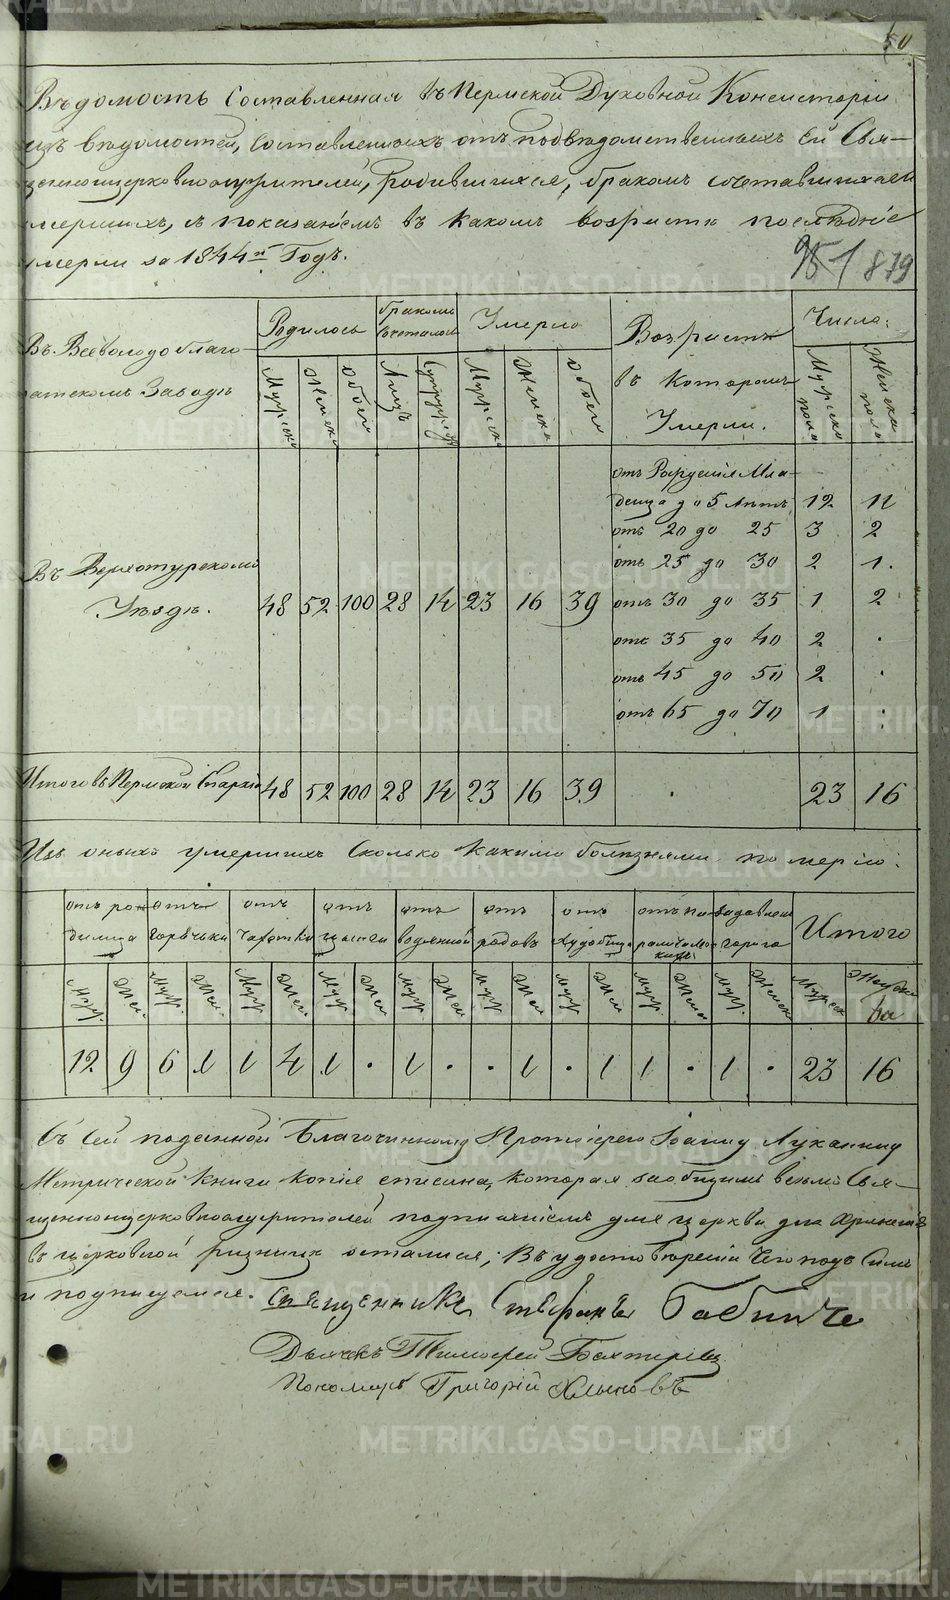 50
Вѣдомость Составленная въ Пермской Духовной Консисторіи
изъ вѣдомостей, Составленныхъ отъ подвѣдомственныхъ ей Свя-
щенноцерковнослужителей, родившихся, бракомъ сочетавшихся и
умершихъ, съ показаніемъ въ какомъ возрастѣ послѣдніе
умерли за 1844й Годъ.
951 879
Въ Всеволодоблаго-
датскомъ Заводѣ
Родилось
Мужеска
Женска
Обоего
бракомъ сочеталось
Лицъ
Супружествъ
Умерло
Мужеска
Женска
Обоего
Возрастъ
въ которомъ
Умерли.
Число:
Мужеска пола
Женска пола
Въ Верхотурскомъ
Уѣздѣ.
48 52 100 28 14 23 16 39
отъ Рожденія Мла-
денца до 5 Лѣтъ 12 11
отъ 20 до 25 3 2
отъ 25 до 30 2 1.
отъ 30 до 35 1 2
отъ 35 до 40 2 .
отъ 45 до 50 2 .
отъ 65 до 70 1 .
Итого въ Пермской Епархіи 48 52 100 28 14 23 16 39 . 23 16
Изъ оныхъ умершихъ Сколько какими болѣзнями померло:
отъ родимца
отъ горячьки
отъ чахотки
отъ цынги
отъ водяной
отъ родовъ
отъ худобища
задавлен горою
Итого
Муж. Жен. Муж. Жен. Муж. Жен. Муж. Жен. Муж. Жен. Муж. Жен. Муж. Жен. Муж. Женс Муж. Женск Мужеск Женска
12 9 6 1 1 4 1 . 1 . . 1 . 1 1 . 1 . 23 16
Съ сей поданной Благочинному Протоіерею Іоанну Луканину
Метрической книги копія списана, которая за общимъ всѣхъ Свя-
щенноцерковнослужителей подписаніемъ для церкви для храненія
въ церковной ризницѣ осталися; Въ удостовѣреніи чего подъ Симъ
и подпишемся. Священникъ Стефанъ Бабинъ
Дьячекъ Тимофей Бахтіревъ
Пономарь Григорій Хлыновъ
METRIKI.GASO-URAL.RU